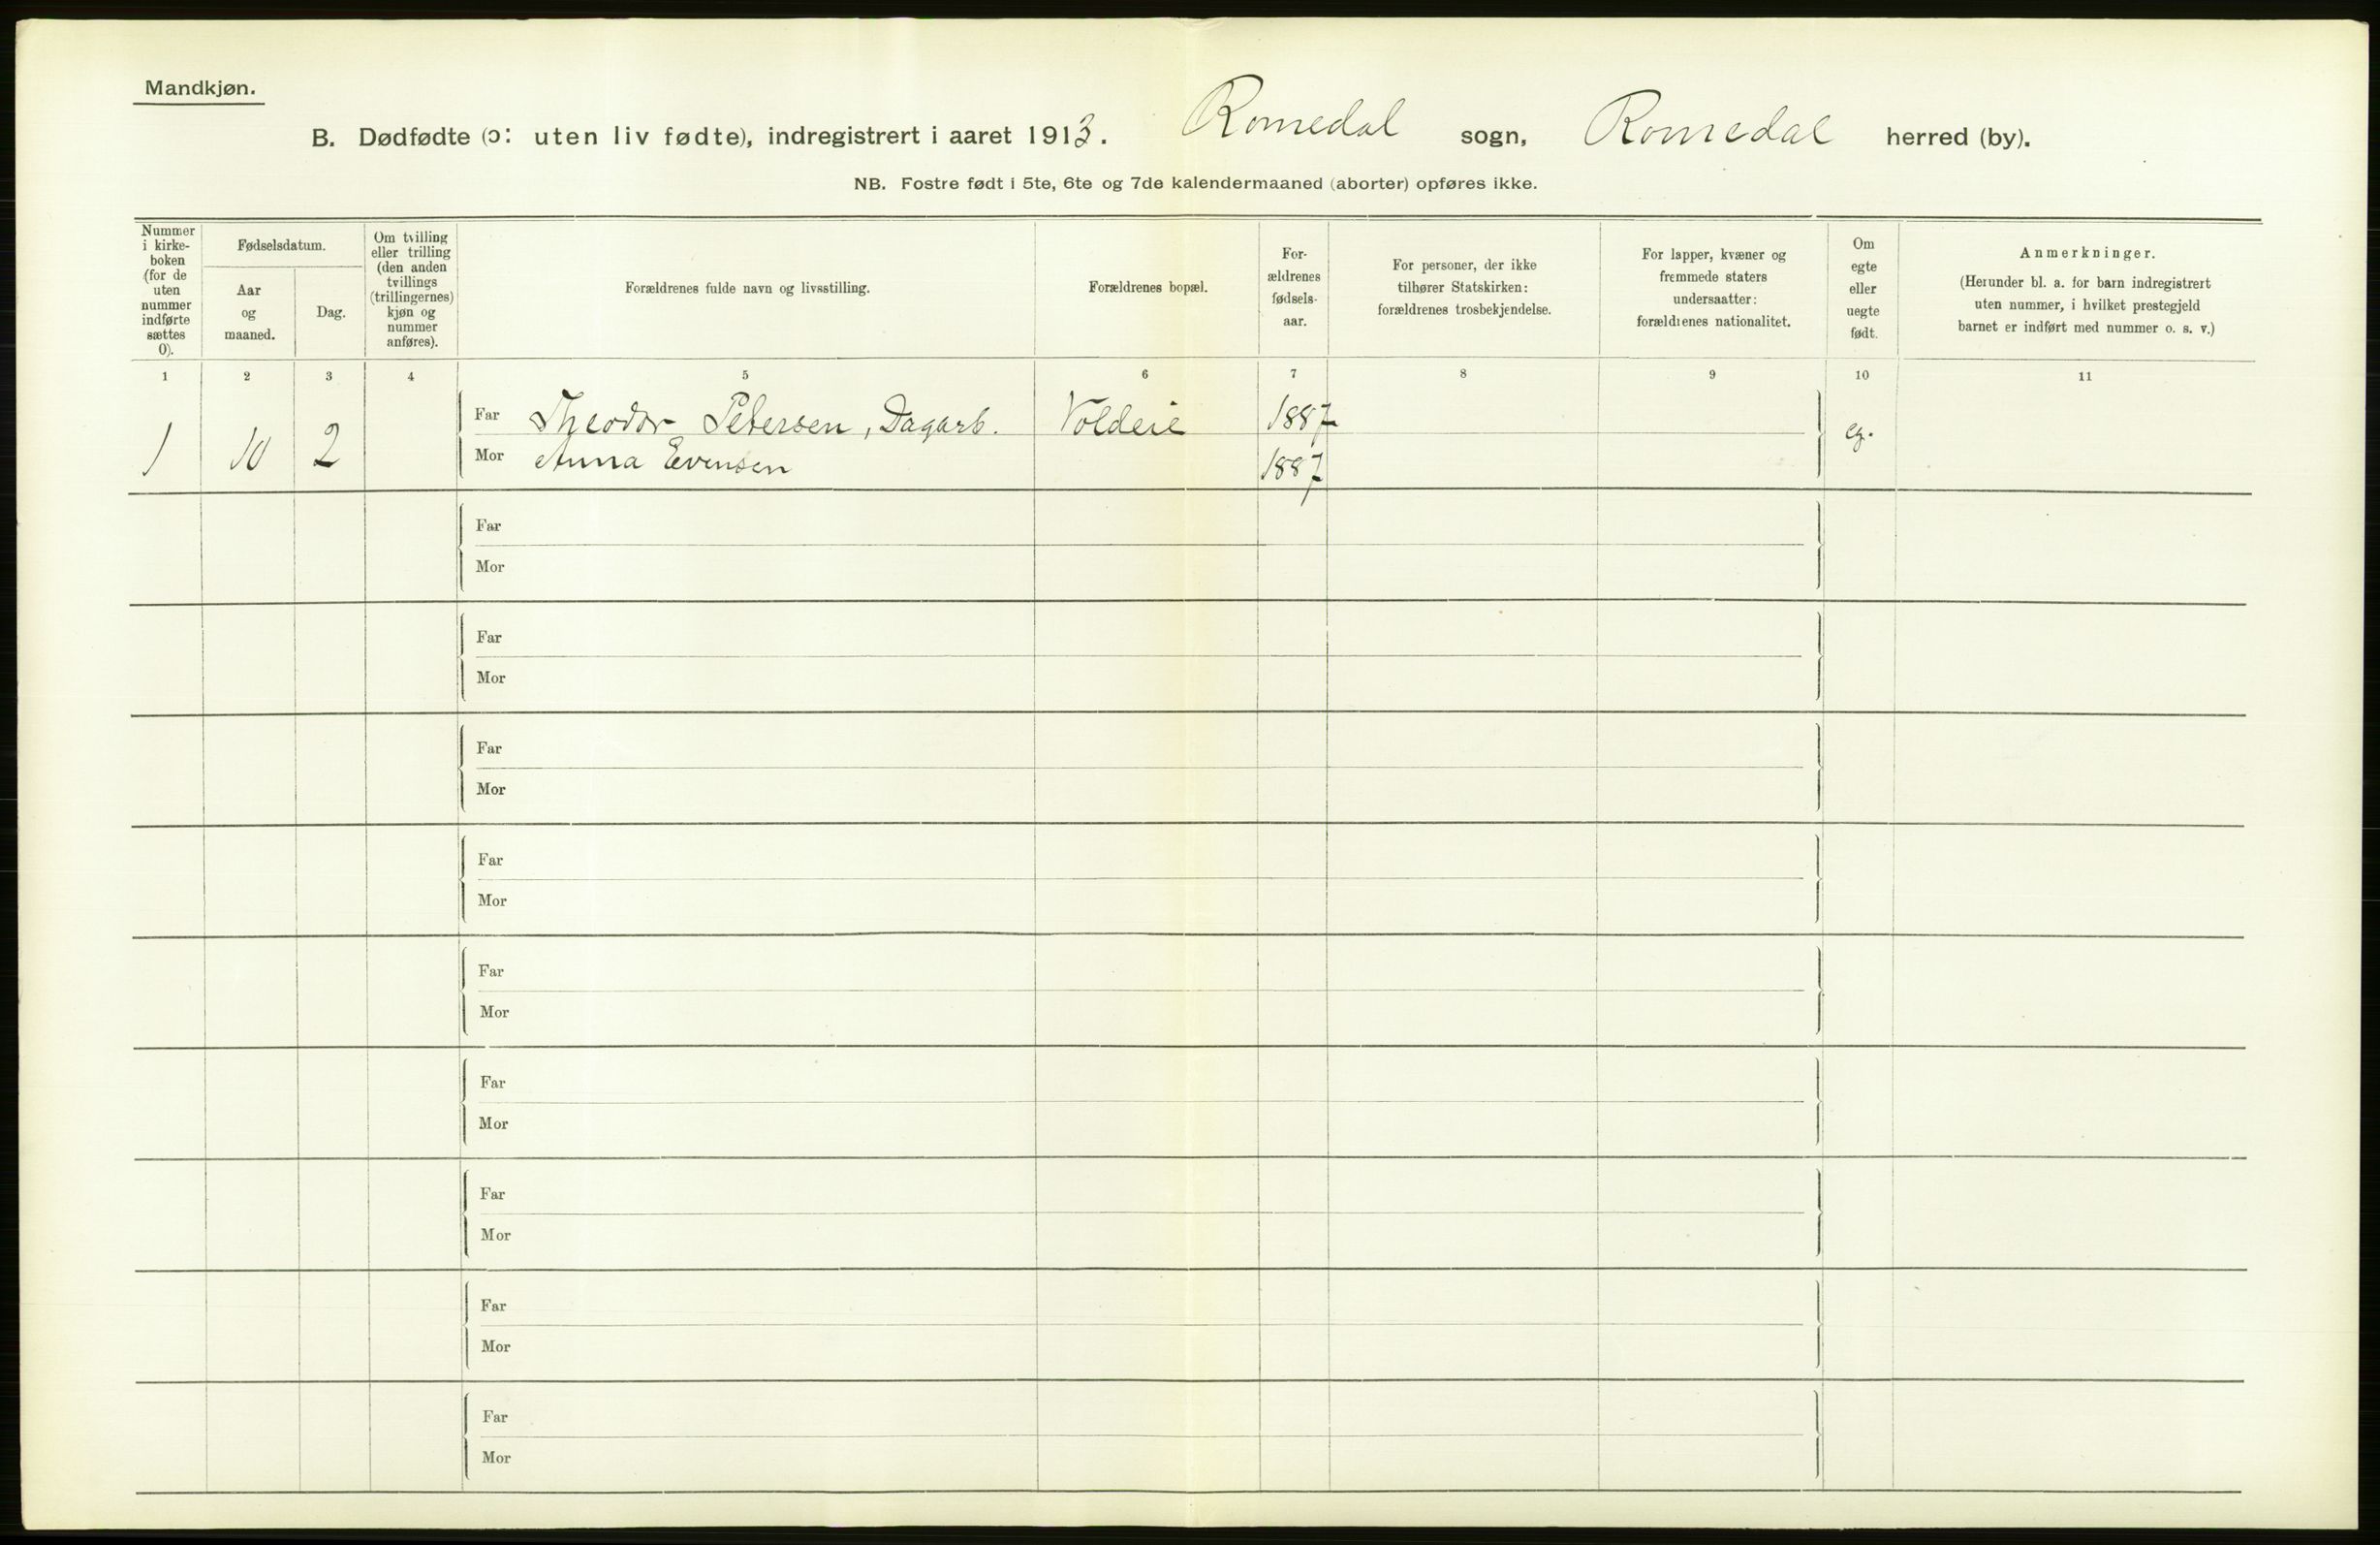 Mandkjøn.
B. Dødfødte (ɔ: uten liv fødte), indregistrert i aaret 1913. Romedal sogn, Romedal herred (by).
NB. Fostre født i 5te, 6te og 7de kalendermaaned (aborter) opføres ikke.
Nummer
i kirke-
boken
(for de
uten
nummer
indførte
sættes
0).
Fødselsdatum.
Aar
og
maaned.
Dag.
Om tvilling
eller trilling
(den anden
tvillings
(trillingernes)
kjøn og
nummer
anføres).
Forældrenes fulde navn og livsstilling.
Forældrenes bopæl.
For-
ældrenes
fødsels-
aar.
For personer, der ikke
tilhører Statskirken:
forældrenes trosbekjendelse.
For lapper, kvæner og
fremmede staters
undersaatter:
forældrenes nationalitet.
Om
egte
eller
uegte
født.
Anmerkninger.
(Herunder bl. a. for barn indregistrert
uten nummer, i hvilket prestegjeld
barnet er indført med nummer o. s. v.)
1 2 3 4 5 6 7 8 9 10 11
Far Theodor Petersen, Dagarb. Voldeie 1887
1 10 2 eg.
Mor Anna Evensen 1887
Far
Mor
Far
Mor
Far
Mor
Far
Mor
Far
Mor
Far
Mor
Far
Mor
Far
Mor
Far
Mor